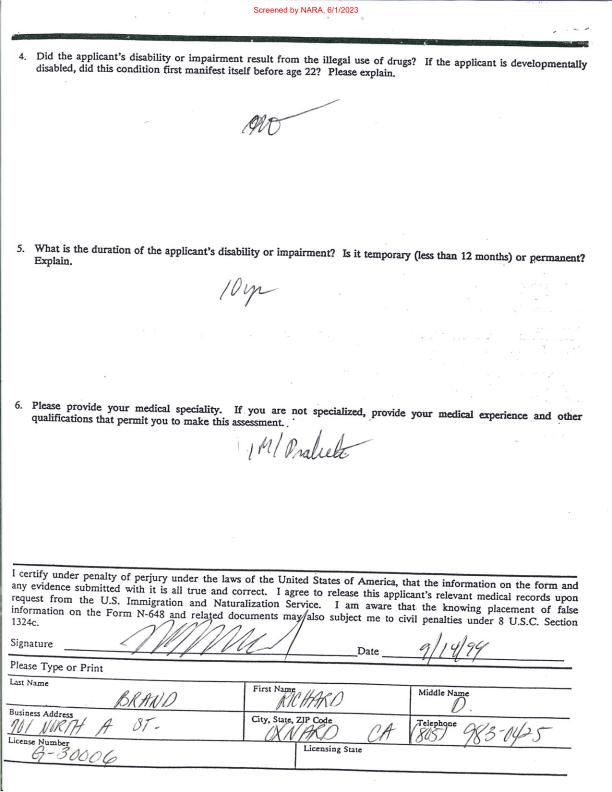 Screened by NARA, 6/1/2023
4. Did the applicant's disability or impairment result from the illegal use of drugs? If the applicant is developmentally
disabled, did this condition first manifest itself before age 22? Please explain.
no
5. What is the duration of the applicant's disability or impairment? Is it temporary (less than 12 months) or permanent?
Explain.
10 yr
6. Please provide your medical speciality. If you are not specialized, provide your medical experience and other
qualifications that permit you to make this assessment.
IM/
I certify under penalty of perjury under the laws of the United States of America, that the information on the form and
any evidence submitted with it is all true and correct. I agree to release this applicant's relevant medical records upon
request from the U.S. Immigration and Naturalization Service. I am aware that the knowing placement of false
information on the Form N-648 and related documents may also subject me to civil penalties under 8 U.S.C. Section
1324c.
Signature Date 9/14/99
Please Type or Print
Last Name First Name Middle Name
BRAND RICHARD D.
Business Address City, State, ZIP Code Telephone
901 NORTH A ST. OXNARD CA (805) 983-0425
License Number Licensing State
G-30006